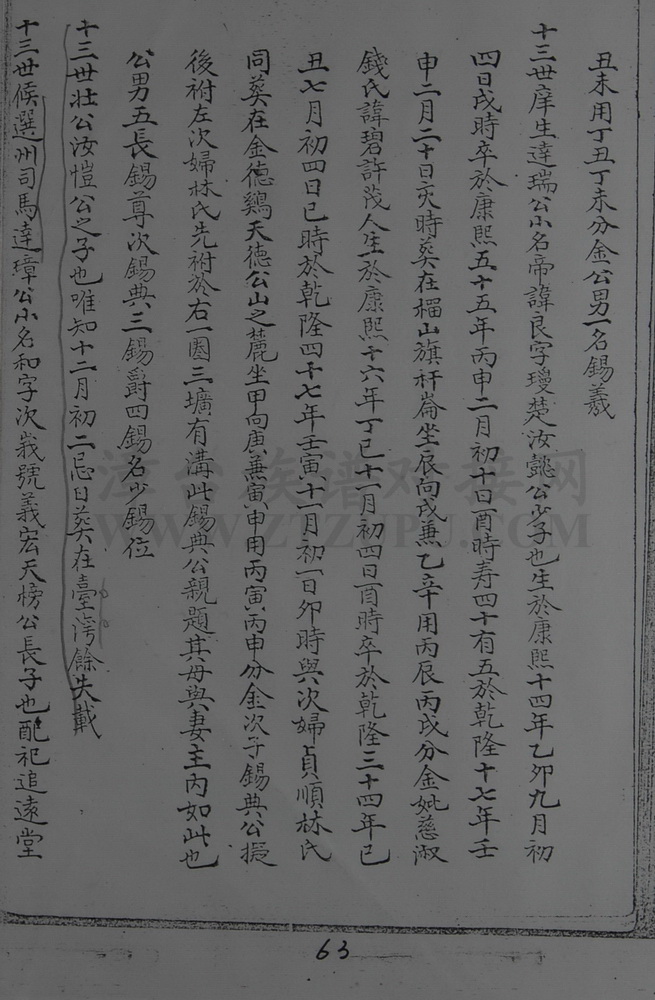 丑未用丁丑丁未分金公男一名錫羲
十三世庠生達瑞公小名帝諱良字璦楚汝懿公少子也生於康熙十四年乙卯九月初
四日戌時卒於康熙五十五年丙申二月初十日酉時壽四十有五於乾隆十七年壬
申二月二十日亥時葬在榴山旗杆崙坐辰向戌兼乙辛用丙辰丙戌分金妣慈淑
錢氏諱碧許茂人生於康熙十六年丁巳十一月初四日酉時卒於乾隆三十四年已
丑七月初四日巳時於乾隆四十七年壬寅十一月初一日卯時與次婦貞順林氏
同葬在金德鷄天德公山之麓坐甲向庚兼寅申用丙寅丙申分金次子錫典公振
後祔左次婦林氏先祔於右一圏三壙有溝此錫典公親題其母與妻主內如此也
公男五長錫尊次錫典三錫爵四錫名少錫位
十三世壯公汝愷公之子也唯知十二月初二忌日葬在臺湾餘失載
十三世候選州司馬達璋公小名和字次峩號義宏天榜公長子也配祀追遠堂
漳台族谱对接网
WWW.ZTZUPU.COM
63